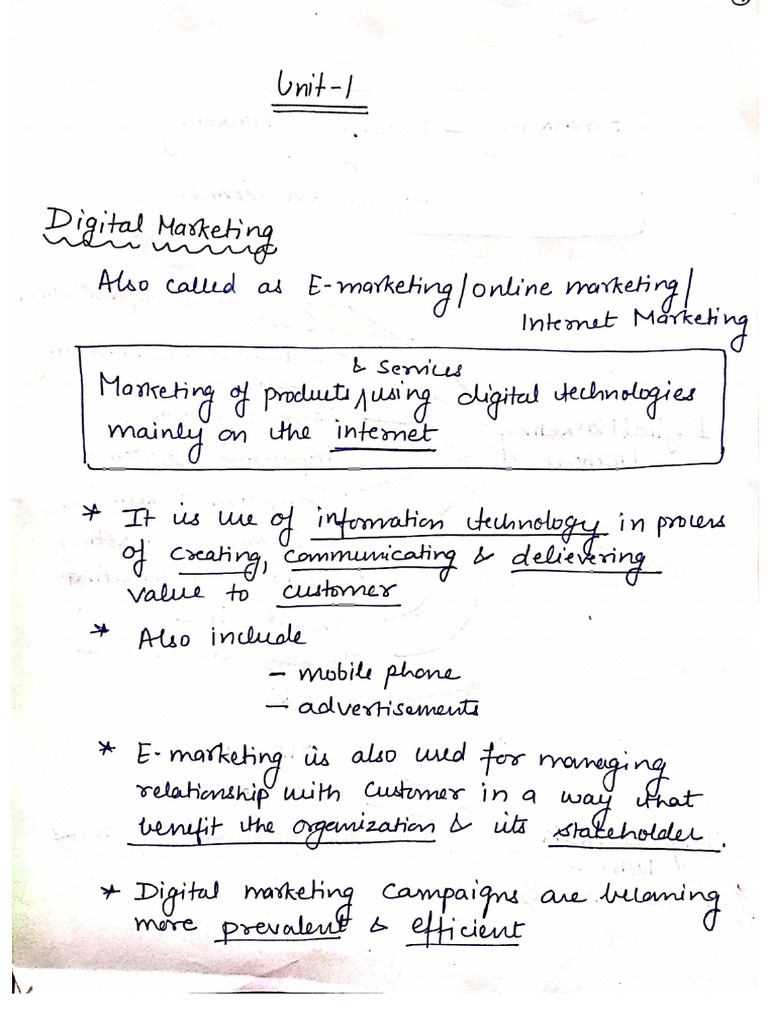 Unit-1
Digital Marketing
Also called as E-marketing/online marketing/
Internet Marketing
& services
Marketing of products using digital technologies
mainly on the internet
* It is use of information technology in process
of creating, communicating & delievering
value to customer
* Also include
- mobile phone
- advertisements
* E-marketing is also used for managing
relationship with customer in a way that
benefit the organization & its stakeholder.
* Digital marketing campaigns are becoming
more prevalent & efficient